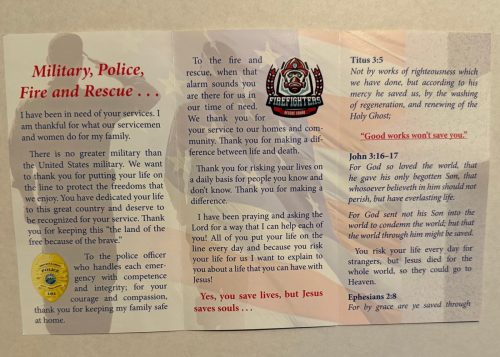 Military, Police,
Fire and Rescue . . .
I have been in need of your services. I
am thankful for what our servicemen
and women do for my family.
There is no greater military than
the United States military. We want
to thank you for putting your life on
the line to protect the freedoms that
we enjoy. You have dedicated your life
to this great country and deserve to
be recognized for your service. Thank
you for keeping this “the land of the
free because of the brave.”
POLICE
To the police officer
who handles each emer-
gency with competence
and integrity; for your
courage and compassion,
thank you for keeping my family safe
at home.
To the fire and
rescue, when that
alarm sounds you
are there for us in
our time of need.
We thank you for
your service to our homes and com-
munity. Thank you for making a dif-
ference between life and death.
FIREFIGHTERS
Thank you for risking your lives on
a daily basis for people you know and
don’t know. Thank you for making a
difference.
I have been praying and asking the
Lord for a way that I can help each of
you! All of you put your life on the
line every day and because you risk
your life for us I want to explain to
you about a life that you can have with
Jesus!
Yes, you save lives, but Jesus
saves souls . . .
Titus 3:5
Not by works of righteousness which
we have done, but according to his
mercy he saved us, by the washing
of regeneration, and renewing of the
Holy Ghost;
“Good works won’t save you.”
John 3:16–17
For God so loved the world, that
he gave his only begotten Son, that
whosoever believeth in him should not
perish, but have everlasting life.
For God sent not his Son into the
world to condemn the world; but that
the world through him might be saved.
You risk your life every day for
strangers, but Jesus died for the
whole world, so they could go to
Heaven.
Ephesians 2:8
For by grace are ye saved through